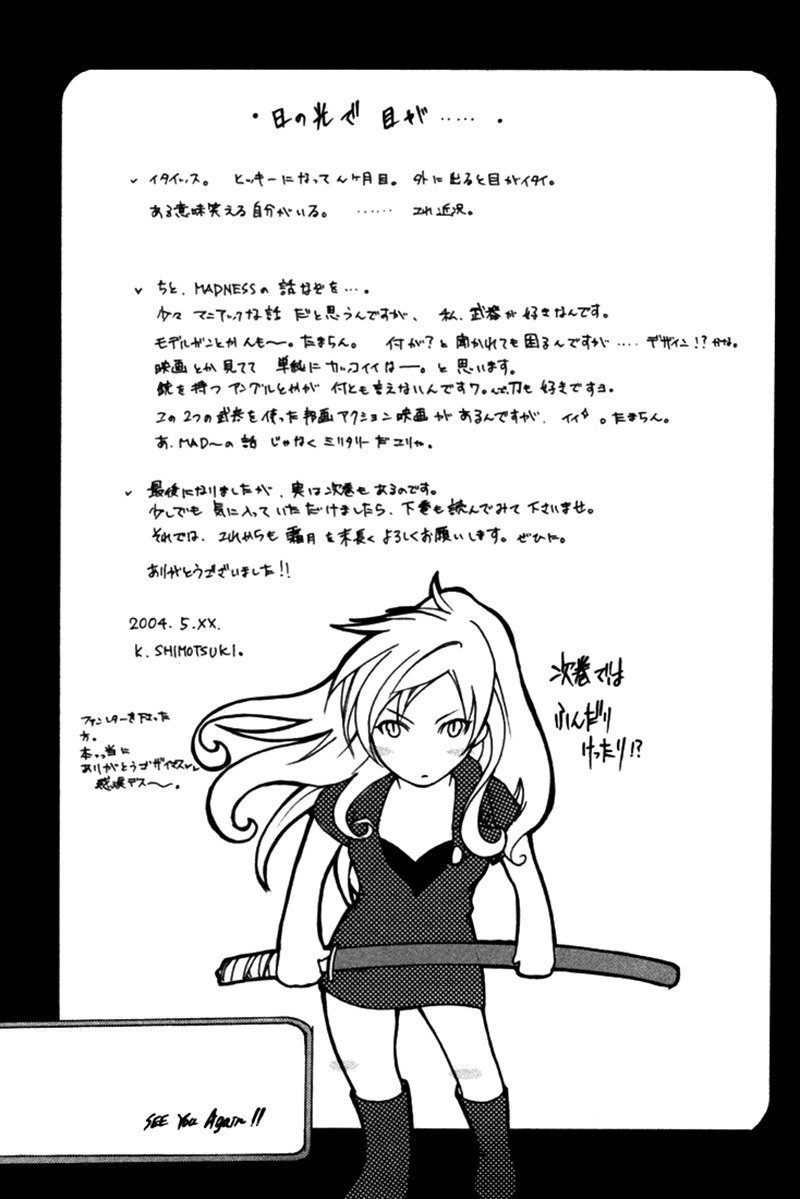 ・日の光で 目が……．
✓ イタイッス。 ヒッキーになってんヶ月目。 外に出ると目がイタイ。
ある意味笑える自分がいる。 …… これ近況。
✓ ちと、MADNESSの 話などを…。
少々 マニアックな話 だと思うんですが、 私、武器が好きなんです。
モデルガンとか んも〜。たまらん。 何が？と 聞かれても困るんですが …… デザイン!? かな。
映画とか見てて 単純に カッコイイは―。と 思います。
銃を持つ アングルとかが 何とも言えないんですワ。んで刀も 好きですヨ。
この2つの武器を使った邦画アクション映画が あるんですが、イイ。たまらん。
あ、MAD〜の話 じゃなく ミリタリーだコリャ。
✓ 最後になりましたが、実は次巻もあるのです。
少しでも 気に入っていただけましたら、下巻も読んでみて下さいませ。
それでは、これからも 霜月を末長く よろしくお願いします。ぜひに。
ありがとうございました!!
2004. 5.XX.
K. SHIMOTSUKI.
次巻では
ふんだり
けったり!?
ファンレターを下さった
方。
本っ当に
ありがとうゴザイマス
感涙デス〜。
SEE You Again!!